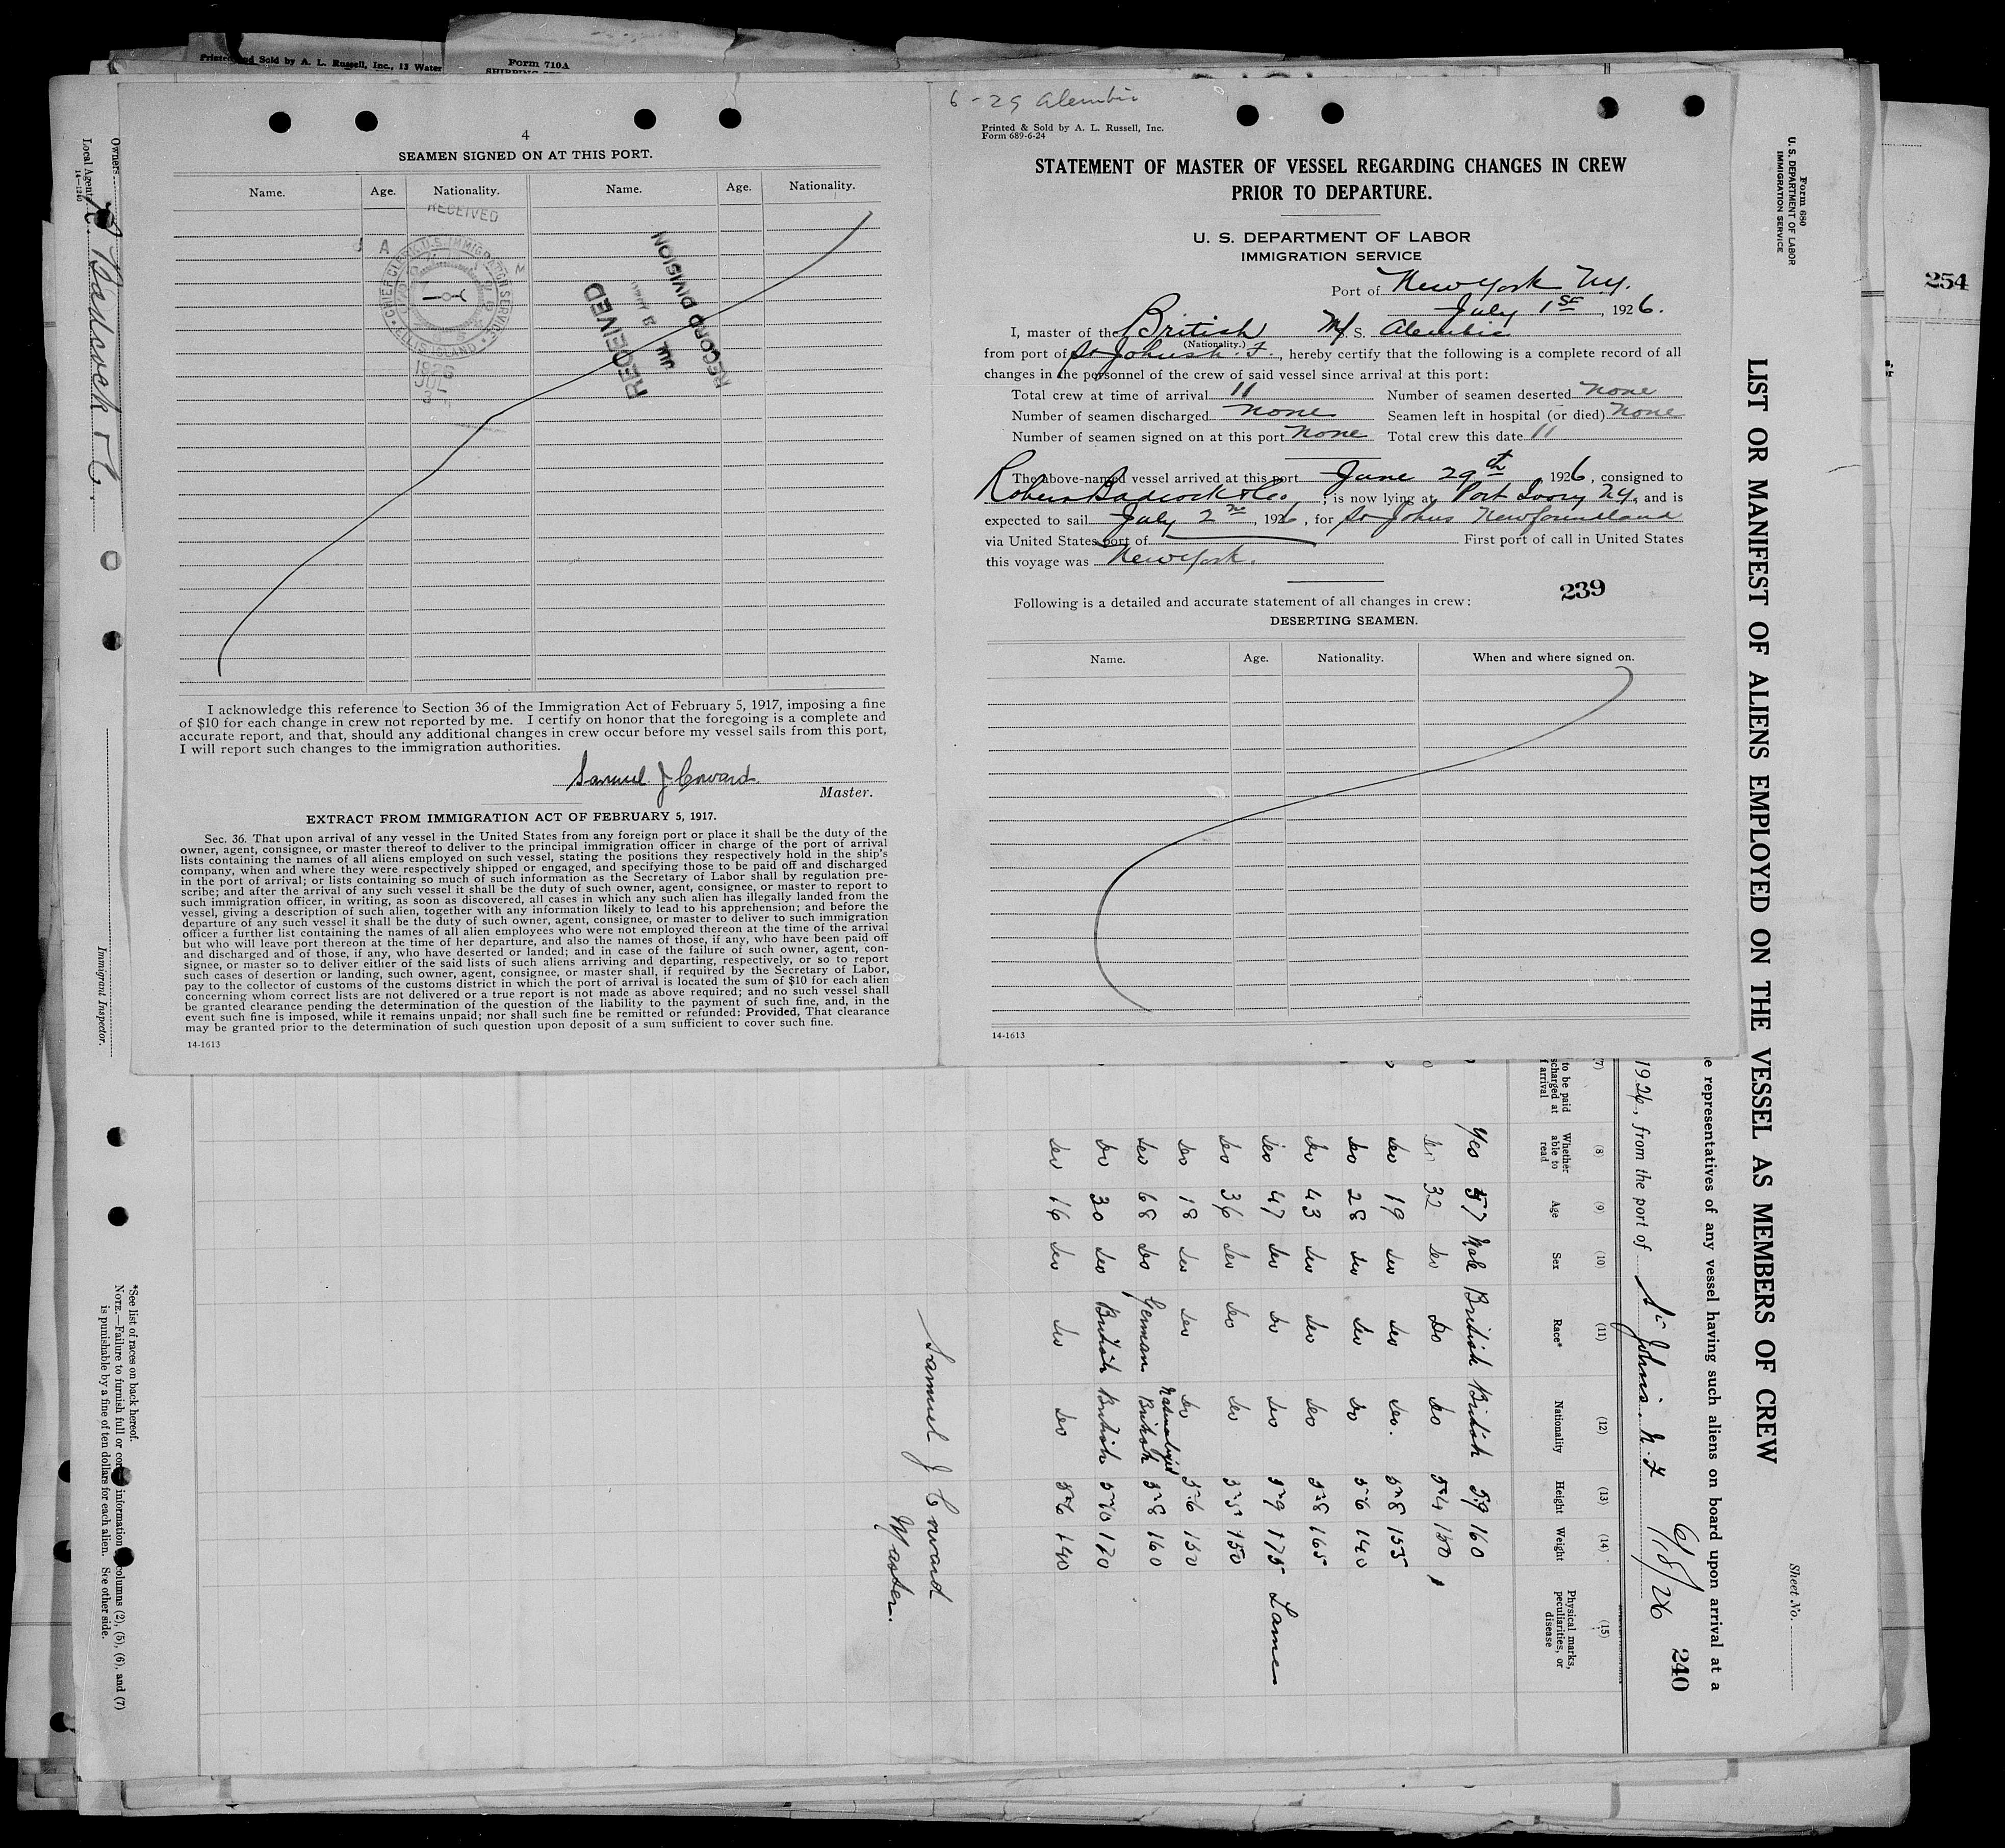 Printed and Sold by A. L. Russell, Inc., 13 Water
Form 710A
4
SEAMEN SIGNED ON AT THIS PORT.
Name. Age. Nationality. Name. Age. Nationality.
RECEIVED
CHIEF CLERK U.S. IMMIGRATION SERVICE
ELLIS ISLAND
1926
JUL
3
RECEIVED
JUL 3
RECORD DIVISION
I acknowledge this reference to Section 36 of the Immigration Act of February 5, 1917, imposing a fine
of $10 for each change in crew not reported by me. I certify on honor that the foregoing is a complete and
accurate report, and that, should any additional changes in crew occur before my vessel sails from this port,
I will report such changes to the immigration authorities.
Samuel J Coward
Master.
EXTRACT FROM IMMIGRATION ACT OF FEBRUARY 5, 1917.
Sec. 36. That upon arrival of any vessel in the United States from any foreign port or place it shall be the duty of the
owner, agent, consignee, or master thereof to deliver to the principal immigration officer in charge of the port of arrival
lists containing the names of all aliens employed on such vessel, stating the positions they respectively hold in the ship's
company, when and where they were respectively shipped or engaged, and specifying those to be paid off and discharged
in the port of arrival; or lists containing so much of such information as the Secretary of Labor shall by regulation pre-
scribe; and after the arrival of any such vessel it shall be the duty of such owner, agent, consignee, or master to report to
such immigration officer, in writing, as soon as discovered, all cases in which any such alien has illegally landed from the
vessel, giving a description of such alien, together with any information likely to lead to his apprehension; and before the
departure of any such vessel it shall be the duty of such owner, agent, consignee, or master to deliver to such immigration
officer a further list containing the names of all alien employees who were not employed thereon at the time of the arrival
but who will leave port thereon at the time of her departure, and also the names of those, if any, who have been paid off
and discharged and of those, if any, who have deserted or landed; and in case of the failure of such owner, agent, con-
signee, or master so to deliver either of the said lists of such aliens arriving and departing, respectively, or so to report
such cases of desertion or landing, such owner, agent, consignee, or master shall, if required by the Secretary of Labor,
pay to the collector of customs of the customs district in which the port of arrival is located the sum of $10 for each alien
concerning whom correct lists are not delivered or a true report is not made as above required; and no such vessel shall
be granted clearance pending the determination of the question of the liability to the payment of such fine, and, in the
event such fine is imposed, while it remains unpaid; nor shall such fine be remitted or refunded: Provided, That clearance
may be granted prior to the determination of such question upon deposit of a sum sufficient to cover such fine.
14-1613
6-29 Alembic
Printed & Sold by A. L. Russell, Inc.
Form 689-6-24
STATEMENT OF MASTER OF VESSEL REGARDING CHANGES IN CREW
PRIOR TO DEPARTURE.
U. S. DEPARTMENT OF LABOR
IMMIGRATION SERVICE
Port of New York N.Y.
July 1st, 1926.
I, master of the British M/S. Alembic
(Nationality.)
from port of St Johns N. F., hereby certify that the following is a complete record of all
changes in the personnel of the crew of said vessel since arrival at this port:
Total crew at time of arrival 11 Number of seamen deserted None
Number of seamen discharged None Seamen left in hospital (or died) None
Number of seamen signed on at this port None Total crew this date 11
The above-named vessel arrived at this port June 29th, 1926, consigned to
Badcock & Co, is now lying at Port Ivory N.Y. and is
expected to sail July 2nd, 1926, for St Johns Newfoundland
via United States port of First port of call in United States
this voyage was New York.
239
Following is a detailed and accurate statement of all changes in crew:
DESERTING SEAMEN.
Name. Age. Nationality. When and where signed on.
14-1613
Form 680
U. S. DEPARTMENT OF LABOR
IMMIGRATION SERVICE
254
LIST OR MANIFEST OF ALIENS EMPLOYED ON THE VESSEL AS MEMBERS OF CREW
Sheet No.
e representatives of any vessel having such aliens on board upon arrival at a
240
1926, from the port of St Johns. N. F
(7) (8) (9) (10) (11) (12) (13) (14) (15)
to be paid
scharged at
arrival
Whether able to read
Age
Sex
Race*
Nationality
Height
Weight
Physical marks, peculiarities, or disease
Yes 57 Male British British 59 160
do 32 do Do do 5-4 150
do 19 do do do. 5-8 155
do 28 do do do 5-6 140
do 43 do do do 5-8 165
do 47 do do do 5-9 175 Lame
do 36 do do do 5-5 150
do 18 do do do 5-6 150
do 68 do German Naturalized British 5-8 160
do 30 do British British 5-10 170
do 16 do do do 5-6 140
Samuel J Coward
Master.
Owners
Local Agents R Badcock & C.
14-1240
Immigrant Inspector.
*See list of races on back hereof.
NOTE.—Failure to furnish full or information columns (2), (5), (6), and (7)
is punishable by a fine of ten dollars for each alien. See other side.